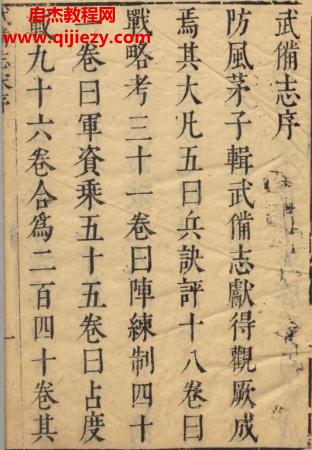 启杰教程网
www.qijiezy.com
武備志序
防風茅子輯武備志獻得觀厥成
焉其大凡五曰兵訣評十八卷曰
戰略考三十一卷曰陣練制四十
一卷曰軍資乘五十五卷曰占度
載九十六卷合爲二百四十卷其